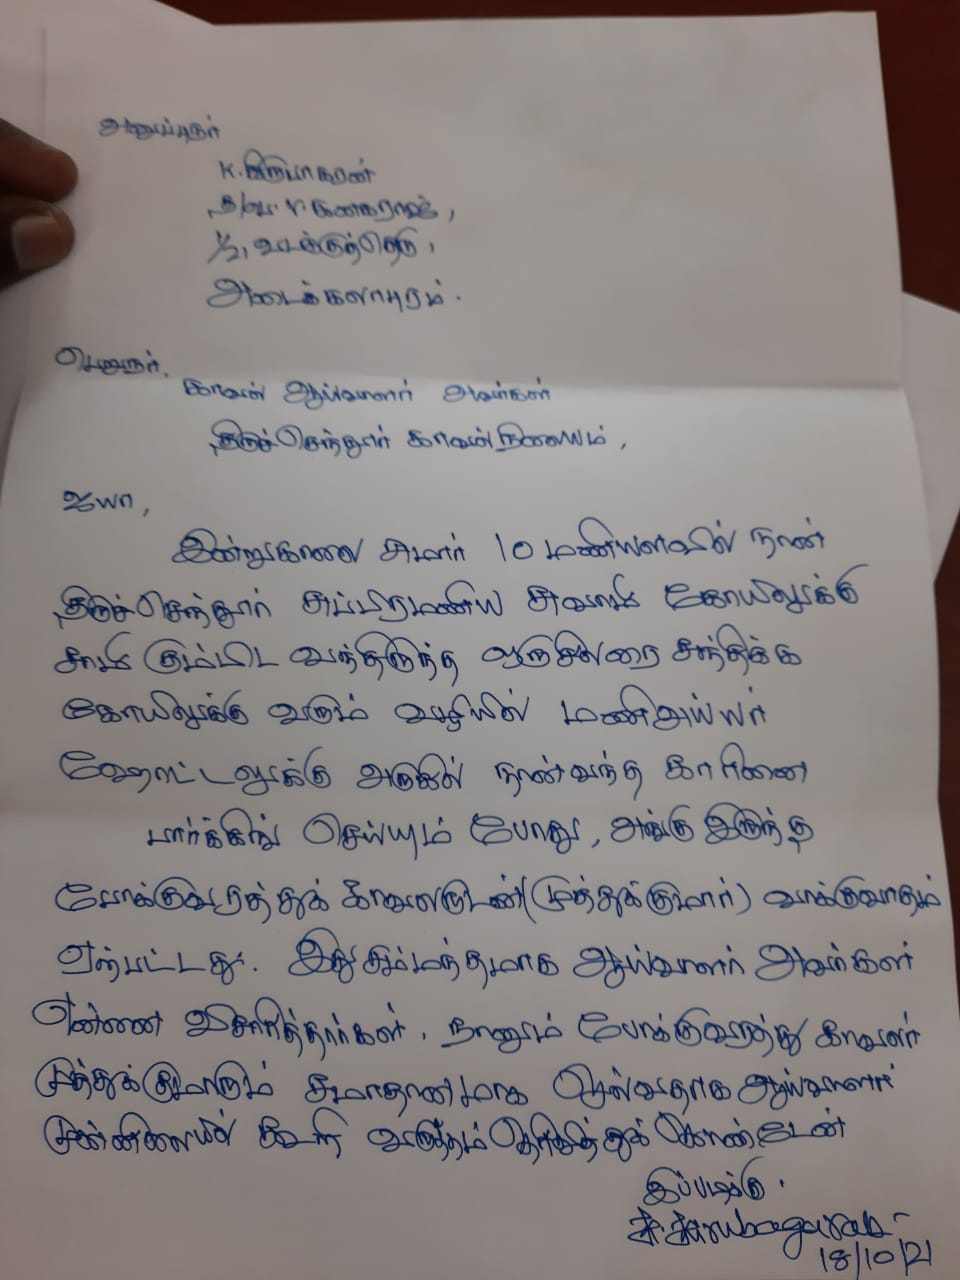 அனுப்புநர்
K. கிருபாகரன்
த/பெ. V. கனகராஜ்,
1/2, வடக்குத்தெரு,
அடைக்கலாபுரம்.
பெறுநர்.
காவல் ஆய்வாளர் அவர்கள்
திருச்செந்தூர் காவல்நிலையம்,
ஐயா,
இன்றுகாலை சுமார் 10 மணியளவில் நான்
திருச்செந்தூர் சுப்பிரமணிய சுவாமி கோயிலுக்கு
சாமி கும்பிட வந்திருந்த ஒருசிலரை சந்திக்க
கோயிலுக்கு வரும் வழியில் மணிஅய்யர்
ஹோட்டலுக்கு அருகில் நான்வந்த காரினை
பார்க்கிங் செய்யும் போது, அங்கு இருந்த
போக்குவரத்துக் காவலருடன் (முத்துக்குமார்) வாக்குவாதம்
ஏற்பட்டது. இது சம்மந்தமாக ஆய்வாளர் அவர்கள்
என்னை விசாரித்தார்கள். நானும் போக்குவரத்து காவலர்
முத்துக்குமாரும் சமாதானமாக செல்வதாக ஆய்வாளர்
முன்னிலையில் கூறி வருத்தம் தெரிவித்துக் கொண்டேன்
இப்படிக்கு.
K. Kirubagaran
18/10/21